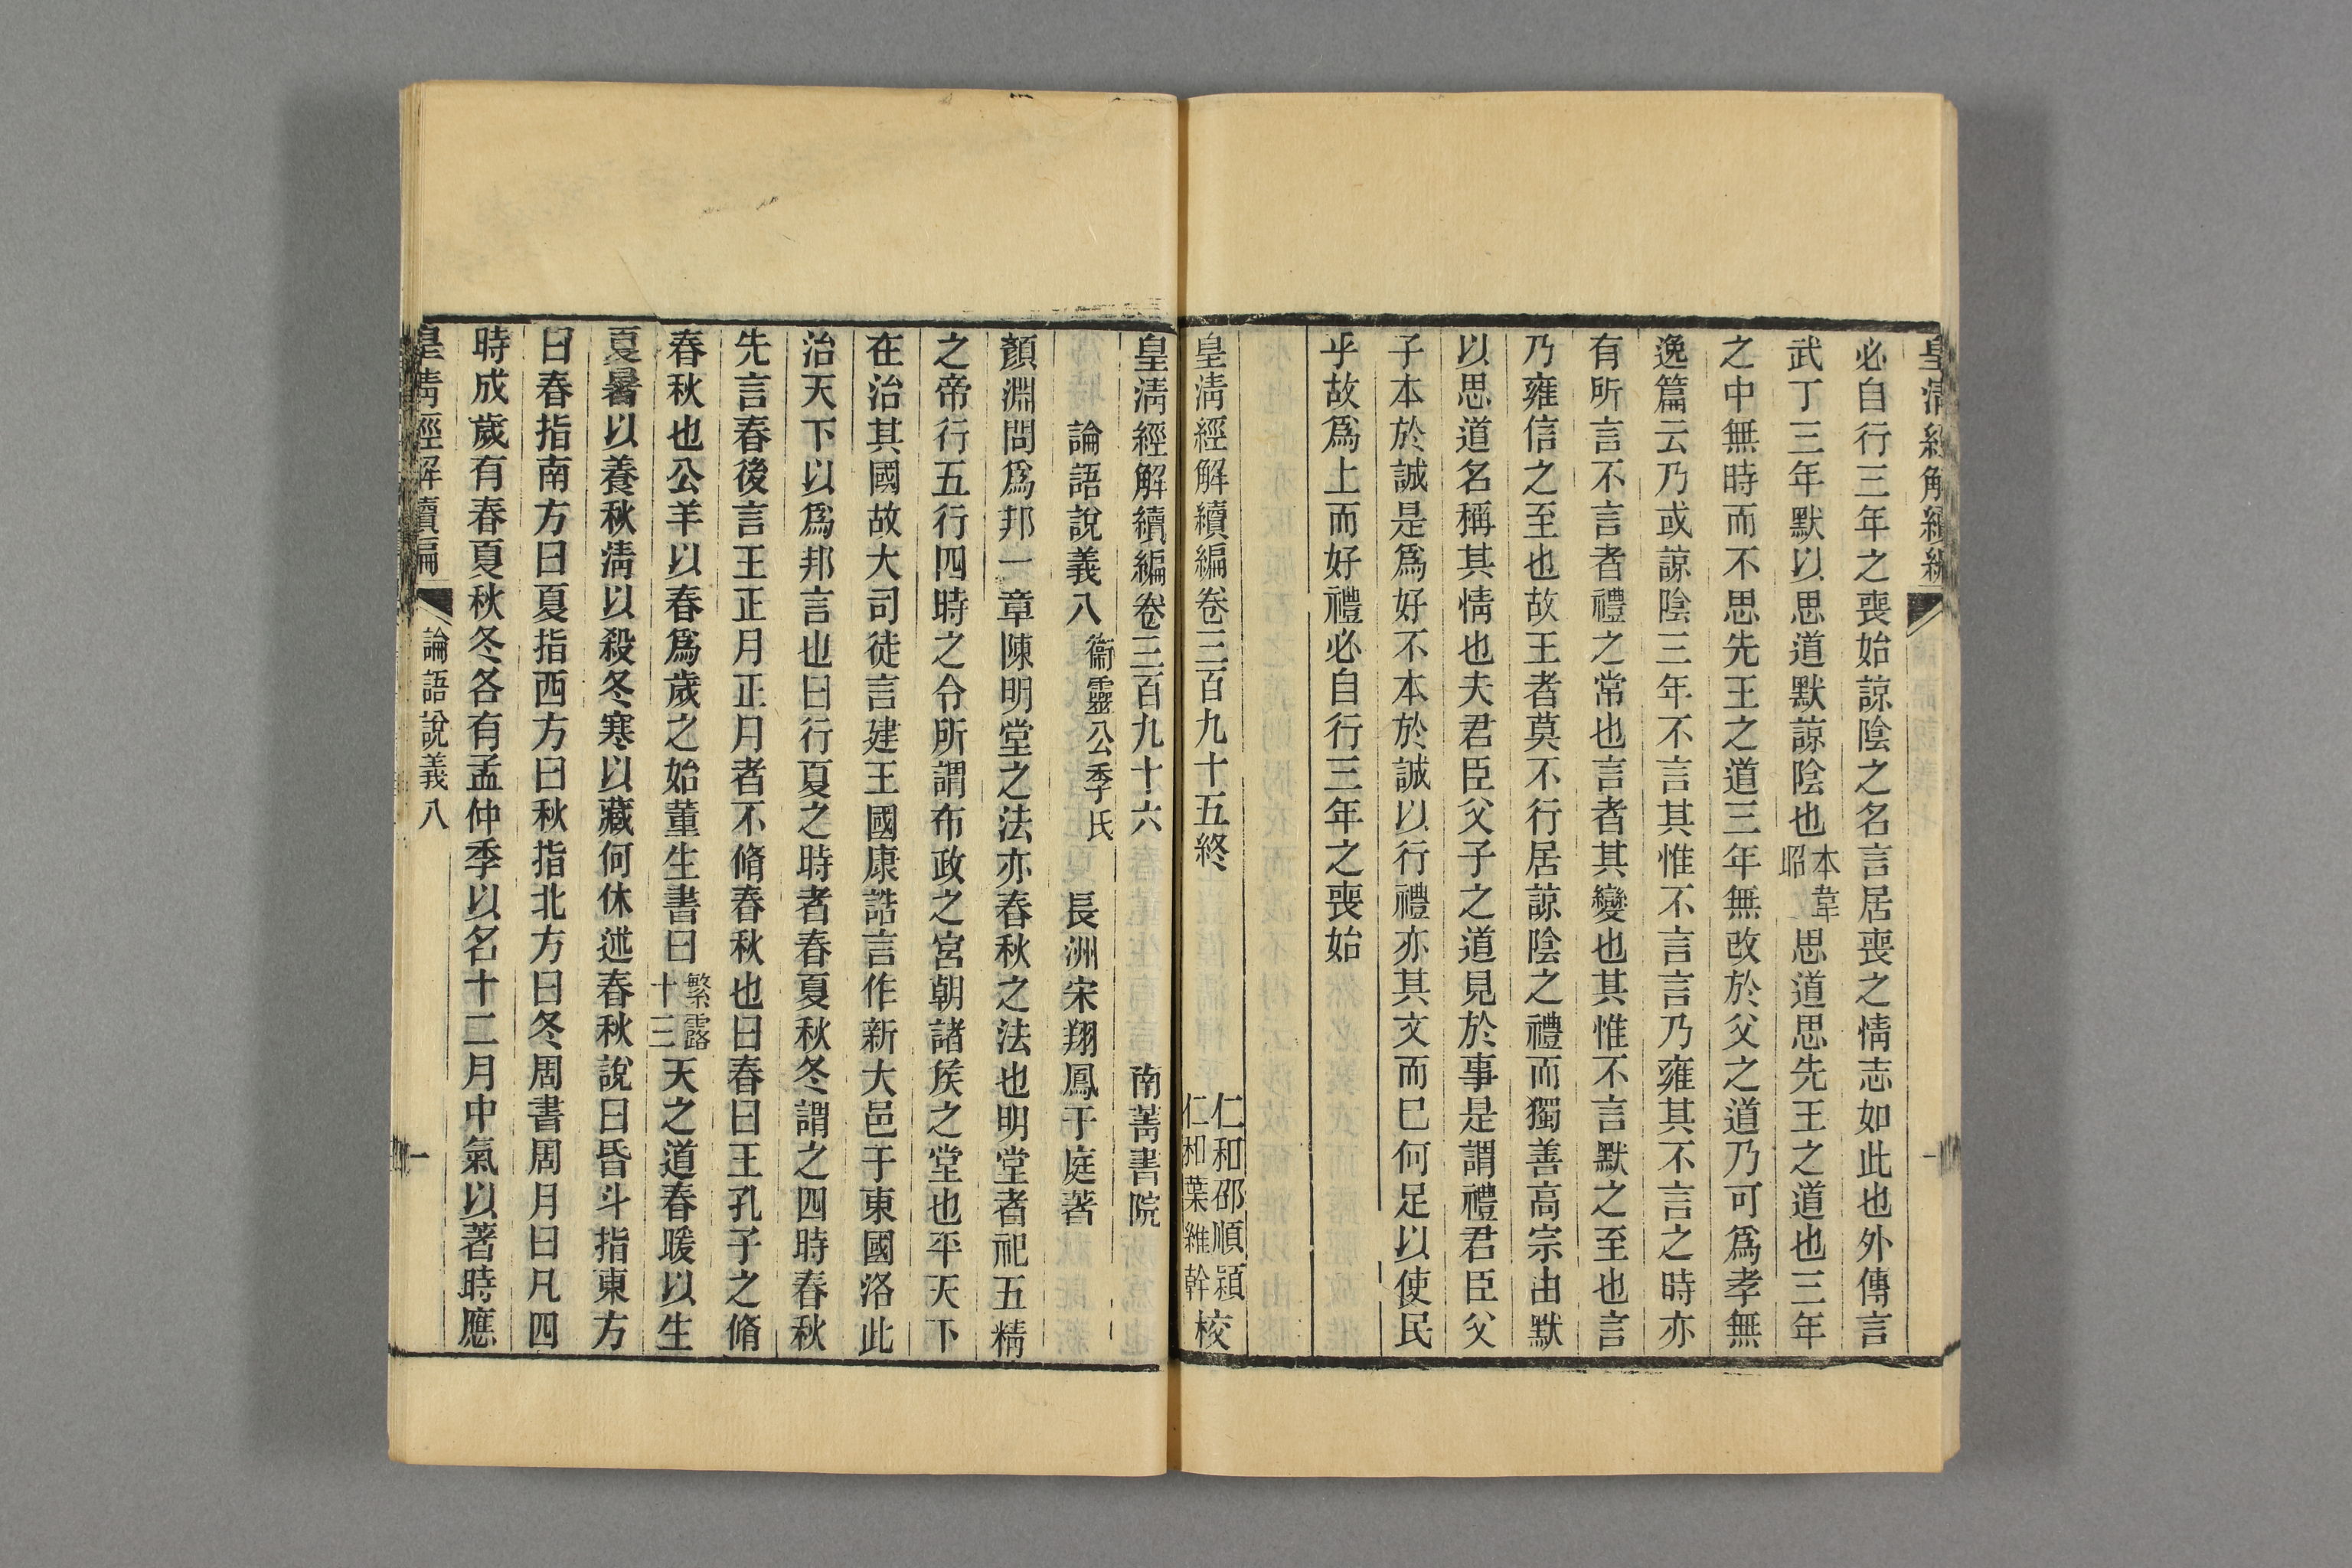 皇清經解續編
一
必自行三年之喪始諒陰之名言居喪之情志如此也外傳言
武丁三年默以思道默諒陰也本韋昭思道思先王之道也三年
之中無時而不思先王之道三年無改於父之道乃可爲孝無
逸篇云乃或諒陰三年不言其惟不言言乃雍其不言之時亦
有所言不言者禮之常也言者其變也其惟不言默之至也言
乃雍信之至也故王者莫不行居諒陰之禮而獨善高宗由默
以思道名稱其情也夫君臣父子之道見於事是謂禮君臣父
子本於誠是爲好不本於誠以行禮亦其文而巳何足以使民
乎故爲上而好禮必自行三年之喪始
皇清經解續編卷三百九十五終
仁和邵順潁
仁和葉維幹
校
皇清經解續編卷三百九十六
南菁書院
論語說義八
衞靈公季氏
長洲宋翔鳳于庭著
顏淵問爲邦一章陳明堂之法亦春秋之法也明堂者祀五精
之帝行五行四時之令所謂布政之宮朝諸矦之堂也平天下
在治其國故大司徒言建王國康誥言作新大邑于東國洛此
治天下以爲邦言也曰行夏之時者春夏秋冬謂之四時春秋
先言春後言王正月正月者不脩春秋也曰春曰王孔子之脩
春秋也公羊以春爲歲之始董生書曰繁露十三天之道春暖以生
夏暑以養秋淸以殺冬寒以藏何休述春秋說曰昏斗指東方
曰春指南方曰夏指西方曰秋指北方曰冬周書周月曰凡四
時成歲有春夏秋冬各有孟仲季以名十二月中氣以著時應
皇清經解續編
論語說義八
一